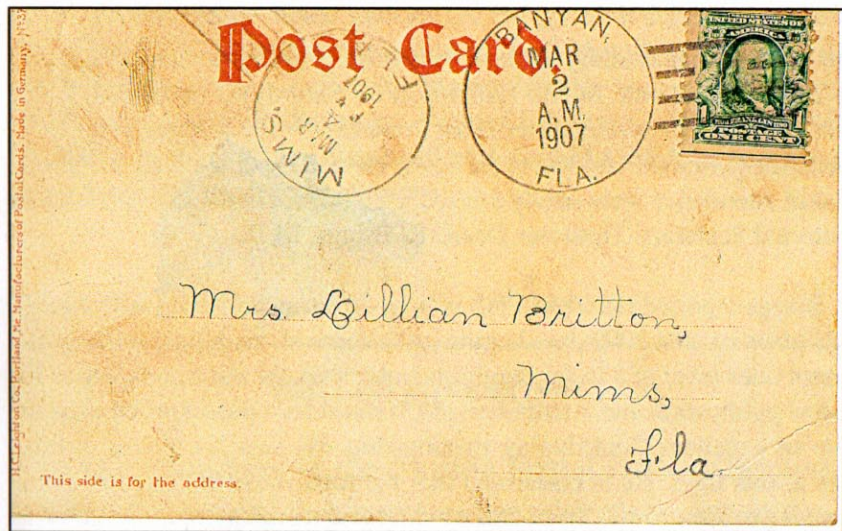 Post Card.
MIMS.
MAR
4
1907
FLA
BANYAN,
MAR
2
A.M.
1907
FLA.
UNITED STATES OF
AMERICA
1 1
POSTAGE
ONE CENT
Mrs. Lillian Britton,
Mims,
Fla.
This side is for the address.
H.C. Leighton Co., Portland, Me. Manufacturers of Postal Cards. Made in Germany.